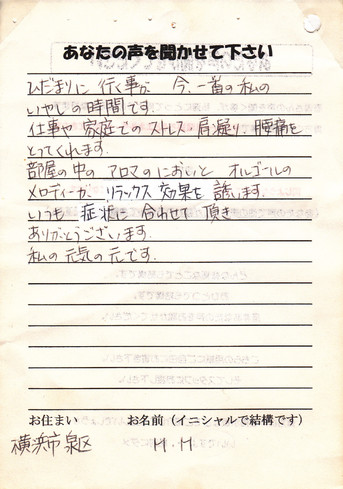 あなたの声を聞かせて下さい
ひだまりに行く事が 今、一番の私の
いやしの時間です。
仕事や家庭でのストレス・肩凝り 腰痛を
とってくれます。
部屋の中のアロマのにおいと オルゴールの
メロディーが リラックス効果を誘います。
いつも 症状に合わせて頂き
ありがとうございます。
私の元気の元です。
お住まい お名前（イニシャルで結構です）
横浜市泉区 H.H